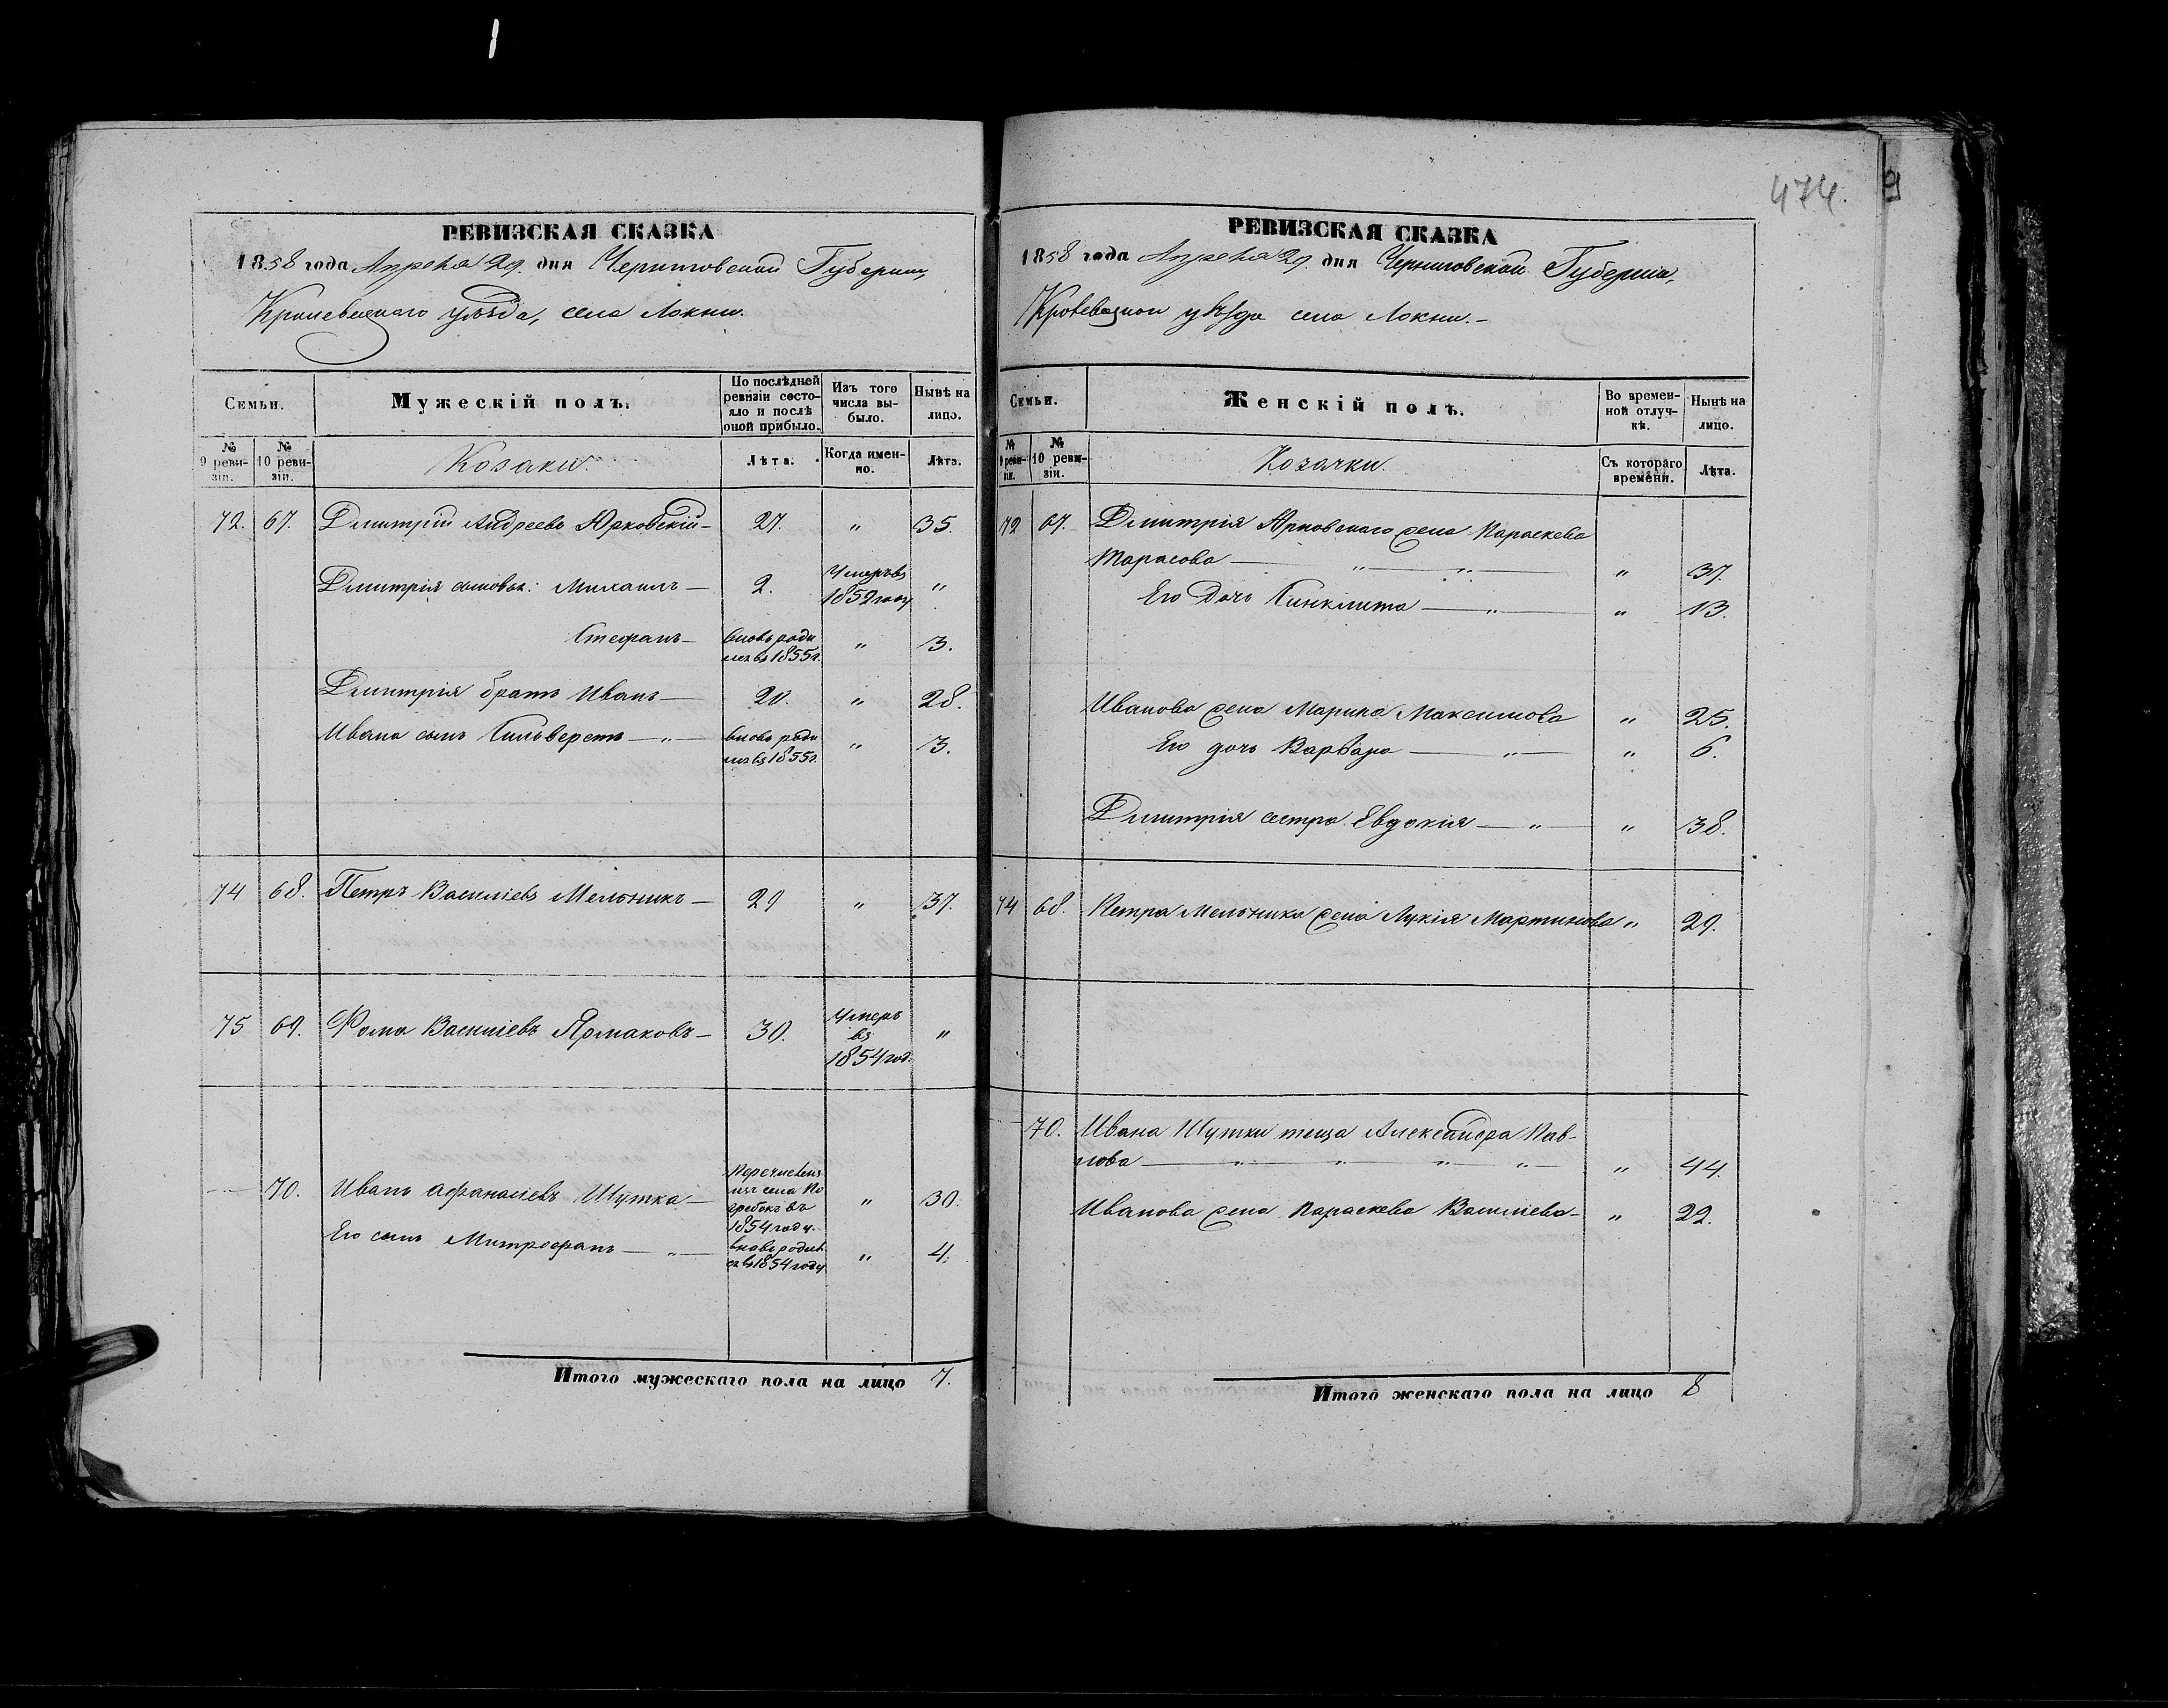 474.
РЕВИЗСКАЯ СКАЗКА
1858 года Апреля 29. дня Черниговской Губернии,
Кролевецкаго уѣзда, села Локни.
Семьи.
Мужескій полъ.
По послѣдней ревизіи состояло и послѣ оной прибыло.
Изъ того числа выбыло.
Нынѣ на лицо.
№ 9 ревизіи.
№ 10 ревизіи.
Козаки
Лѣта.
Когда именно.
Лѣта.
72. 67. Дмитрій Андреевъ Юрковскій — 27. " 35.
Дмитрія сыновья: Михаилъ — 2. Умеръ въ 1852 году "
Стефанъ — вновь родился въ 1855 г. " 3.
Дмитрія братъ Иванъ — 20. " 28.
Ивана сынъ Сильверстъ — " — вновь родился въ 1855 г. " 3.
74 68. Петръ Василіевъ Мельникъ — 29 " 37.
75 69. Фома Василіевъ Ярмаковъ — 30. Умеръ въ 1854 год. "
70. Иванъ Афанасіевъ Шутка — Перечисленъ изъ села Погребокъ въ 1854 году. " 30.
Его сынъ Митрофанъ — " — вновь родился въ 1854 году " 4.
Итого мужескаго пола на лицо 7.
РЕВИЗСКАЯ СКАЗКА
1858 года Апреля 29. дня Черниговской Губерніи,
уѣзда села Локни. —
Семьи.
Женскій полъ.
Во временной отлучкѣ.
Нынѣ на лицо.
№ 9 ревизіи.
№ 10 ревизіи.
Козачки.
Съ котораго времени.
Лѣта.
72 67. Дмитрія Юрковскаго жена Параскева
Тарасова — " — " — " 37.
Его дочь Синклита — " — " 13.
Иванова жена Марина Максимова " 25.
Его дочь Варвара — " — " 6.
Дмитрія сестра Евдокія — " — " 38.
74 68. Петра Мельника жена Лукія Мартинова " 29.
70. Ивана Шутки теща Александра Пав-
лова — " — " — " — " — " 44.
Иванова жена Параскева Василіева — " 22.
Итого женскаго пола на лицо 8